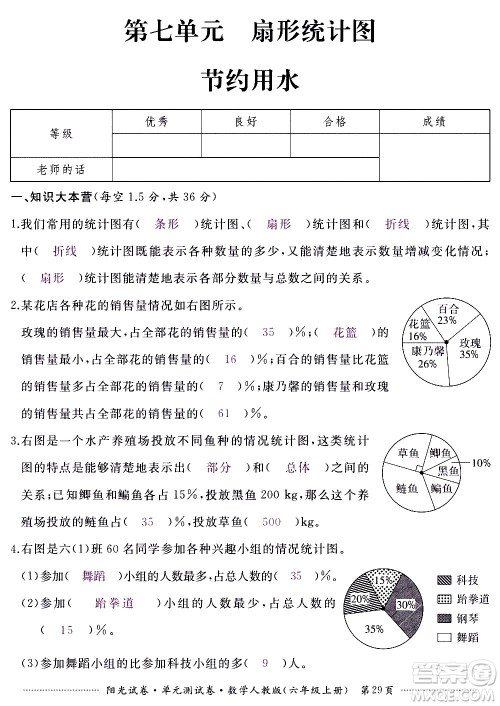 第七单元　扇形统计图
节约用水
等级 优秀 良好 合格 成绩
老师的话
一、知识大本营(每空1.5分,共36分)
1.我们常用的统计图有( 条形 )统计图、( 扇形 )统计图、( 折线 )统计图,其
中( 折线 )统计图既能表示各种数量的多少,又能清楚地表示数量增减变化情况;
( 扇形 )统计图能清楚地表示各部分数量与总数之间的关系。
2.某花店各种花的销售量情况如右图所示。
玫瑰的销售量最大,占全部花的销售量的( 35 )%;( 花篮 )的
销售量最小,占全部花的销售量的( 16 )%;百合的销售量比花篮
的销售量多占全部花的销售量的( 7 )%;康乃馨的销售量和玫瑰
的销售量共占全部花的销售量的( 61 )%。
百合
23%
花篮
16%
玫瑰
35%
康乃馨
26%
3.右图是一个水产养殖场投放不同鱼种的情况统计图,这种统计
图的特点是能够清楚地表示出( 部分 )和( 总体 )之间的
关系。已知鲫鱼和鳊鱼各占15%,投放黑鱼200 kg,那么这个养
殖场投放的鲢鱼占( 35 )%,投放草鱼( 500 )kg。
草鱼
鲫鱼
10%
黑鱼
鲢鱼
鳊鱼
4.右图是六(1)班60名同学参加各种兴趣小组的情况统计图。
(1)参加( 舞蹈 )小组的人数最多,占总人数的( 35 )%。
(2)参加( 跆拳道 )小组的人数最少,占总人数的
( 15 )%。
(3)参加舞蹈小组的比参加科技小组的多占总人数的
15%
20%
30%
35%
科技
跆拳道
钢琴
舞蹈
阳光试卷·单元测试卷·数学人教版(六年级上册)　第29页